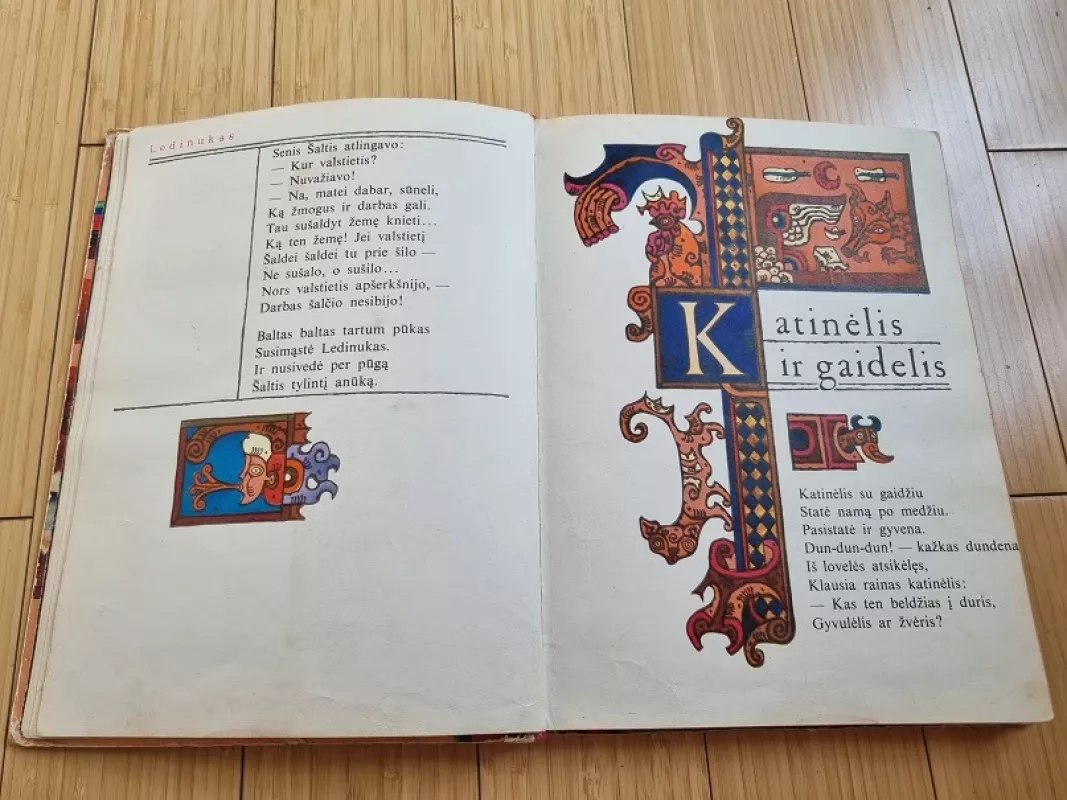 Ledinukas
Senis Šaltis atlingavo:
— Kur valstietis?
— Nuvažiavo!
— Na, matei dabar, sūneli,
Ką žmogus ir darbas gali.
Tau sušaldyt žemę knieti...
Ką ten žemę! Jei valstietį
Šaldei šaldei tu prie šilo —
Ne sušalo, o sušilo...
Nors valstietis apšerkšnijo, —
Darbas šalčio nesibijo!
Baltas baltas tartum pūkas
Susimąstė Ledinukas.
Ir nusivedė per pūgą
Šaltis tylintį anūką.
Katinėlis
ir gaidelis
Katinėlis su gaidžiu
Statė namą po medžiu.
Pasistatė ir gyvena.
Dun-dun-dun! — kažkas dundena
Iš lovelės atsikėlęs,
Klausia rainas katinėlis:
— Kas ten beldžias į duris,
Gyvulėlis ar žvėris?